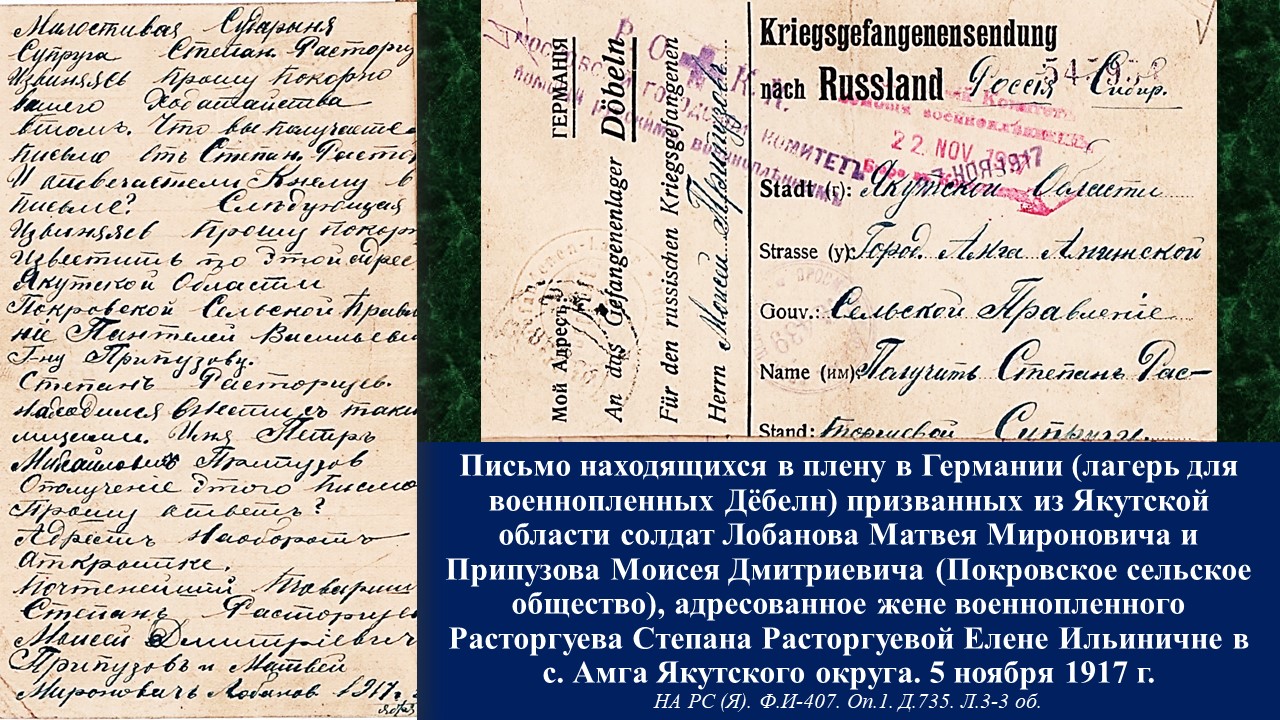 Милостивая Сударыня
Супруга Степан. Расторгу
Извиняяев прошу Покорно
вашего Ходатайства
втомъ. Что вы получаете
письмо отъ Степан. Растор
И отвечаетели Кнему в
письме? Следующая
Извиняяев прошу покор
Известить по этой адрес
Якутской Области
Покровской Сельской Правл
ние Пантелей Васильеви
Г-ну Припузову.
Степанъ Расторгуев.
Находился вместе съ таки
лицами. Имя Петръ
Михайловичъ Припузов
Ополучение этого Письмо
Прошу ответъ?
Адрестъ Наоборотъ
Открытке.
Почтенейший Товарищ
Степанъ Расторгуев
Моисей Дмитріевич
Припузовъ и Матвей
Мироновичъ Лобанов 1917г.
ГЕРМАНІЯ
Мой Адресъ
Döbeln
An das Gefangenenlager
Für den russischen Kriegsgefangenen
Herrn Моисей Припузовъ
Kriegsgefangenensendung
nach Russland Россія Сибир.
22 NOV 1917
НОЯ 1917
КОМИТЕТЪ
Stadt (г): Якутской Области
Strasse (у): Город Амга Амгинской
Gouv.: Сельской Правленіе
Name (им): Получить Степанъ Рас-
Stand: торгиевой Супругу.
Письмо находящихся в плену в Германии (лагерь для
военнопленных Дёбелн) призванных из Якутской
области солдат Лобанова Матвея Мироновича и
Припузова Моисея Дмитриевича (Покровское сельское
общество), адресованное жене военнопленного
Расторгуева Степана Расторгуевой Елене Ильиничне в
с. Амга Якутского округа. 5 ноября 1917 г.
НА РС (Я). Ф.И-407. Оп.1. Д.735. Л.3-3 об.